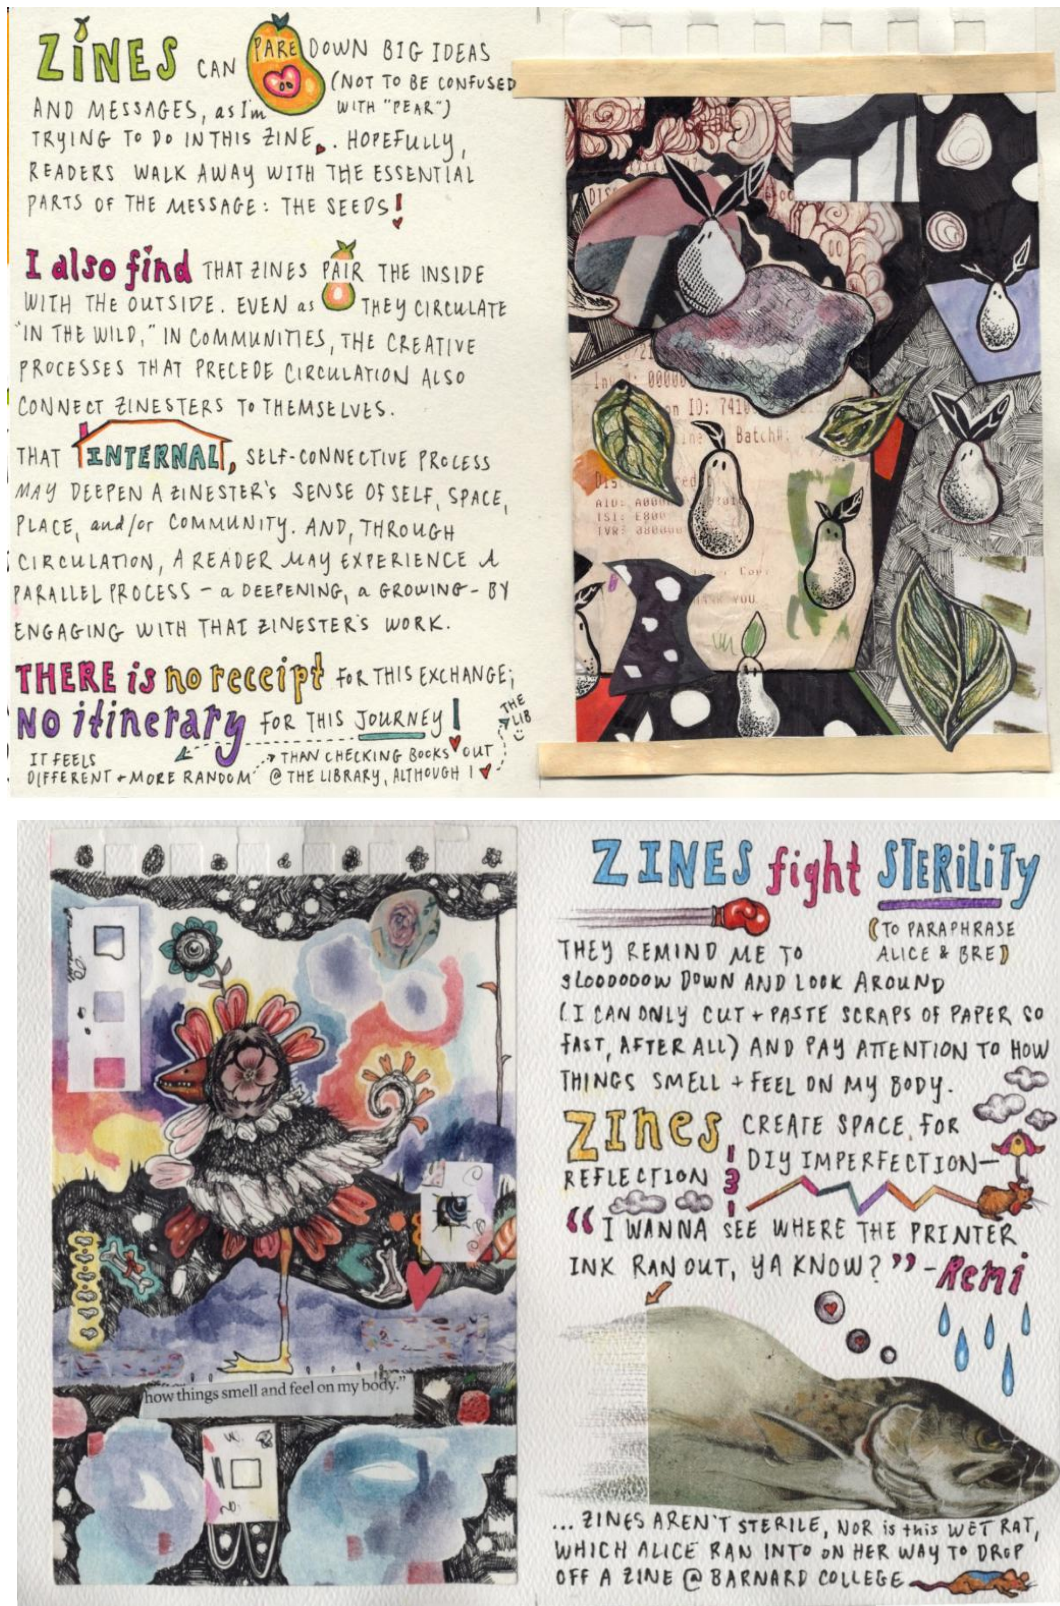 ZINES CAN PARE DOWN BIG IDEAS
(NOT TO BE CONFUSED
WITH "PEAR")
AND MESSAGES, as I'm
TRYING TO DO IN THIS ZINE. HOPEFULLY,
READERS WALK AWAY WITH THE ESSENTIAL
PARTS OF THE MESSAGE: THE SEEDS!
I also find THAT ZINES PAIR THE INSIDE
WITH THE OUTSIDE. EVEN as THEY CIRCULATE
"IN THE WILD," IN COMMUNITIES, THE CREATIVE
PROCESSES THAT PRECEDE CIRCULATION ALSO
CONNECT ZINESTERS TO THEMSELVES.
THAT INTERNAL, SELF-CONNECTIVE PROCESS
MAY DEEPEN A ZINESTER'S SENSE OF SELF, SPACE,
PLACE, and/or COMMUNITY. AND, THROUGH
CIRCULATION, A READER MAY EXPERIENCE A
PARALLEL PROCESS - a DEEPENING, a GROWING - BY
ENGAGING WITH THAT ZINESTER'S WORK.
THERE is no receipt FOR THIS EXCHANGE;
NO itinerary FOR THIS JOURNEY!
IT FEELS
DIFFERENT + MORE RANDOM
THAN CHECKING BOOKS OUT
@ THE LIBRARY, ALTHOUGH I
THE
LIB
Inv#: 0000
ID: 7410
Batch#:
AID: A000
TSI: E800
TVR: 080000
Copy
YOU
ZINES fight STERILITY
(TO PARAPHRASE
ALICE & BRE)
THEY REMIND ME TO
SLOOOOOOW DOWN AND LOOK AROUND
(I CAN ONLY CUT + PASTE SCRAPS OF PAPER SO
FAST, AFTER ALL) AND PAY ATTENTION TO HOW
THINGS SMELL + FEEL ON MY BODY.
ZINES CREATE SPACE FOR
REFLECTION & DIY IMPERFECTION—
"I WANNA SEE WHERE THE PRINTER
INK RAN OUT, YA KNOW?" - Remi
how things smell and feel on my body."
... ZINES AREN'T STERILE, NOR is this WET RAT,
WHICH ALICE RAN INTO ON HER WAY TO DROP
OFF A ZINE @ BARNARD COLLEGE